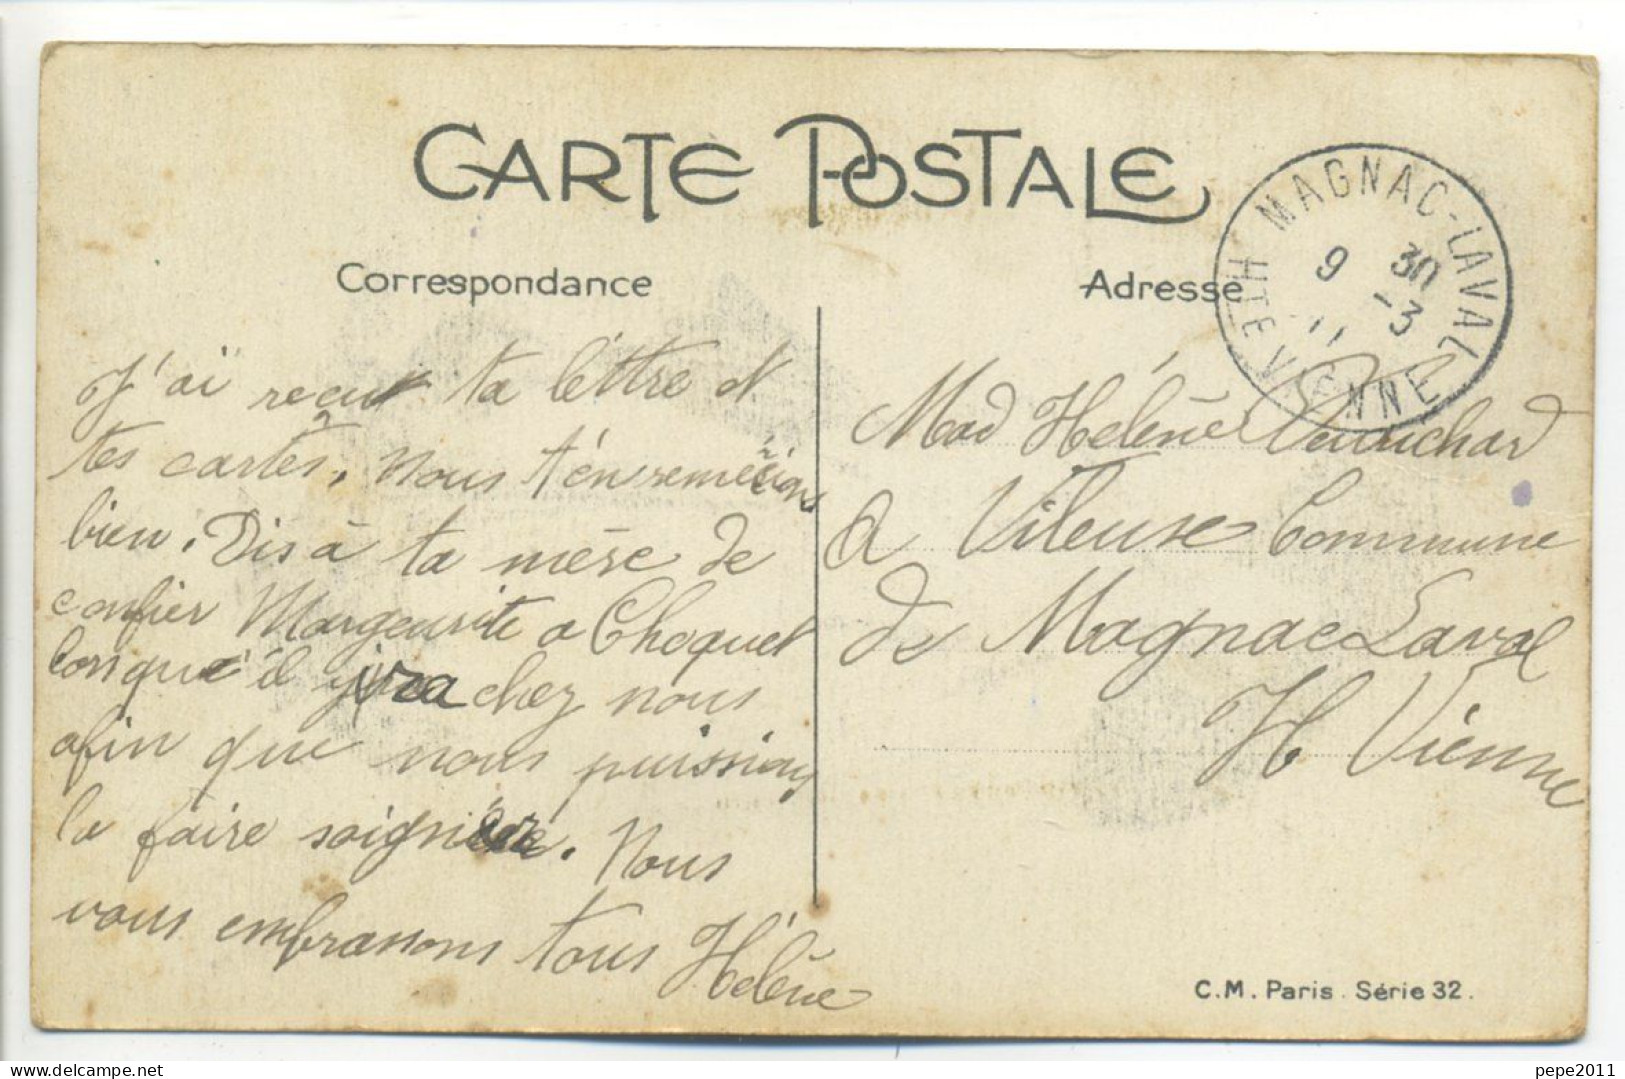 CARTE POSTALE
Correspondance
Adresse
MAGNAC-LAVAL
9 30
-3
11
HTE VIENNE
J'ai reçut ta léttre et
tes cartes. Nous t'én remércions
bien. Dis à ta mère de
confier Margeurite a Choquet
lorsque'il jira chez nous
afin que nous puissions
la faire soignier. Nous
vous embrassons tous Hélène
Mad Hélène
A Vileuse Commune
de Magnac Laval
H Vienne
C.M. Paris. Série 32.
pepe2011